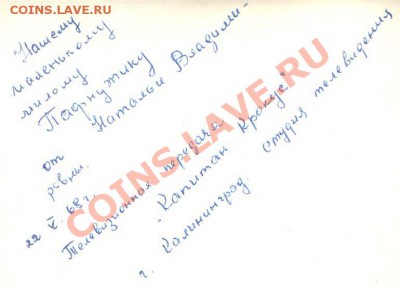 COINS.LAVE.RU
Нашему
маленькому
милому
Парнужику
Натальи Владими-
ровны.
От
22 V. 68 г.
Телевизионная передача
"Капитан Крокус"
г. Калининград. Студия телевидения
COINS.LAVE.RU
COINS.LAVE.RU
COINS.LAVE.RU